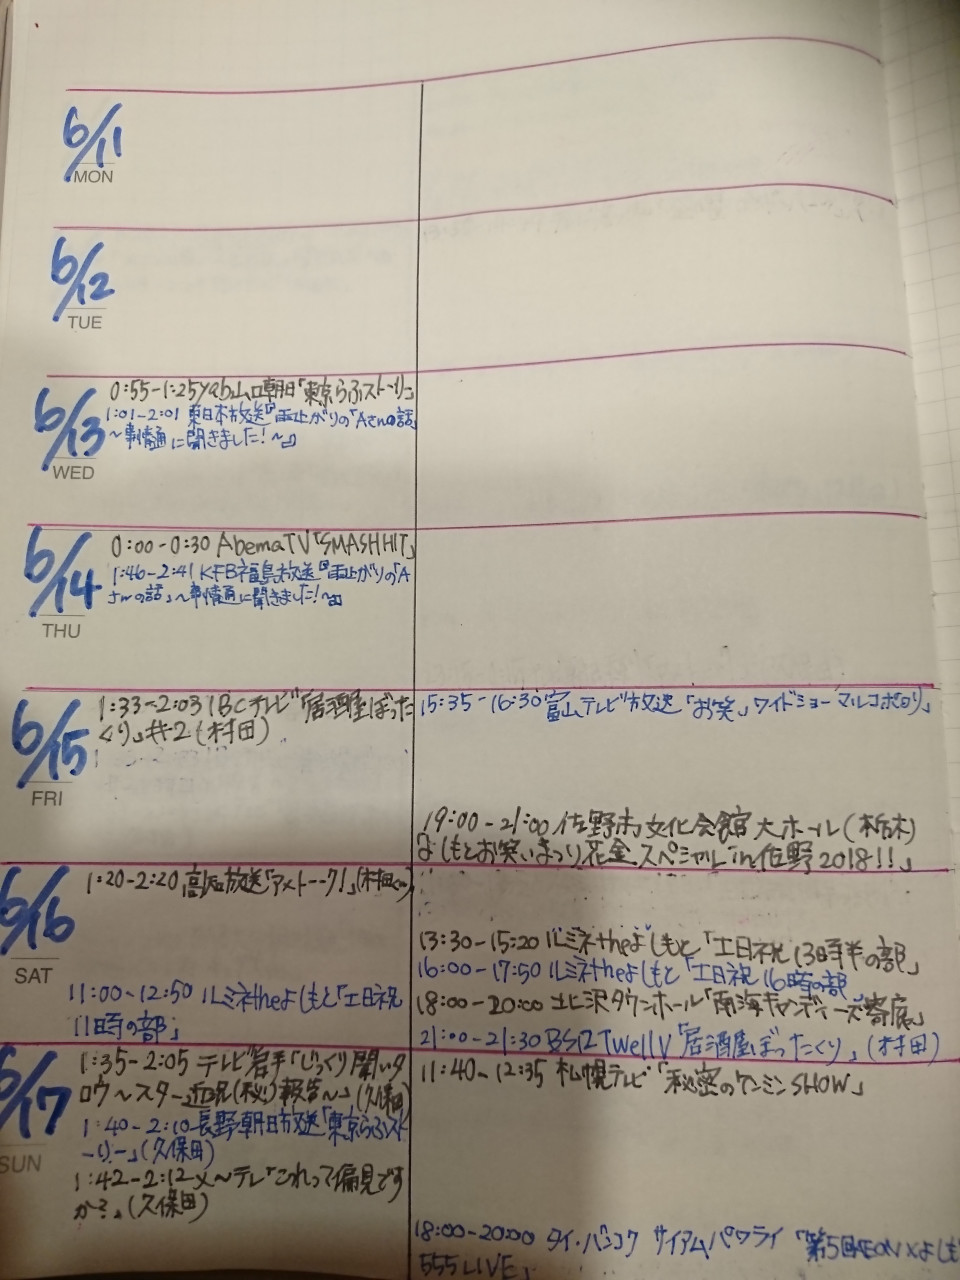 6/11
MON
6/12
TUE
6/13
WED
0:55-1:25yab山口朝日「東京らふストーリー」
1:01-2:01 東日本放送『雨上がりの「Aさんの話」
～事情通に聞きました!～』
6/14
THU
0:00-0:30 AbemaTV「SMASHHIT」
1:46-2:41 KFB福島放送『雨上がりの「A
さんの話」～事情通に聞きました!～』
6/15
FRI
1:33-2:03 IBCテレビ「居酒屋ぼった
くり」#2(村田)
15:35-16:30富山テレビ放送「お笑いワイドショーマルコポロリ」
19:00-21:00 佐野市文化会館 大ホール(栃木)
「よしもとお笑いまつり花金スペシャルin佐野2018!!」
6/16
SAT
1:20-2:20 高知放送「アメトーーク!」(村田くん)
11:00-12:50 ルミネtheよしもと「土日祝
11時の部」
13:30-15:20 ルミネtheよしもと「土日祝 13時半の部」
16:00-17:50 ルミネtheよしもと「土日祝 16時の部
18:00-20:00 北沢タウンホール「南海キャンディーズ寄席」
21:00-21:30 BS12 TwellV「居酒屋ぼったくり」(村田)
6/17
SUN
1:35-2:05 テレビ岩手「じっくり聞いタ
ロウ～スター近況(秘)報告～」(久保田)
1:40-2:10 長野朝日放送「東京らふスト
ーリー」(久保田)
1:42-2:12メ～テレ「これって偏見です
か?」(久保田)
11:40-12:35 札幌テレビ「秘密のケンミンSHOW」
18:00-20:00 タイ・バンコク サイアムパワライ 「第5回AEON×よしも
555 LIVE」